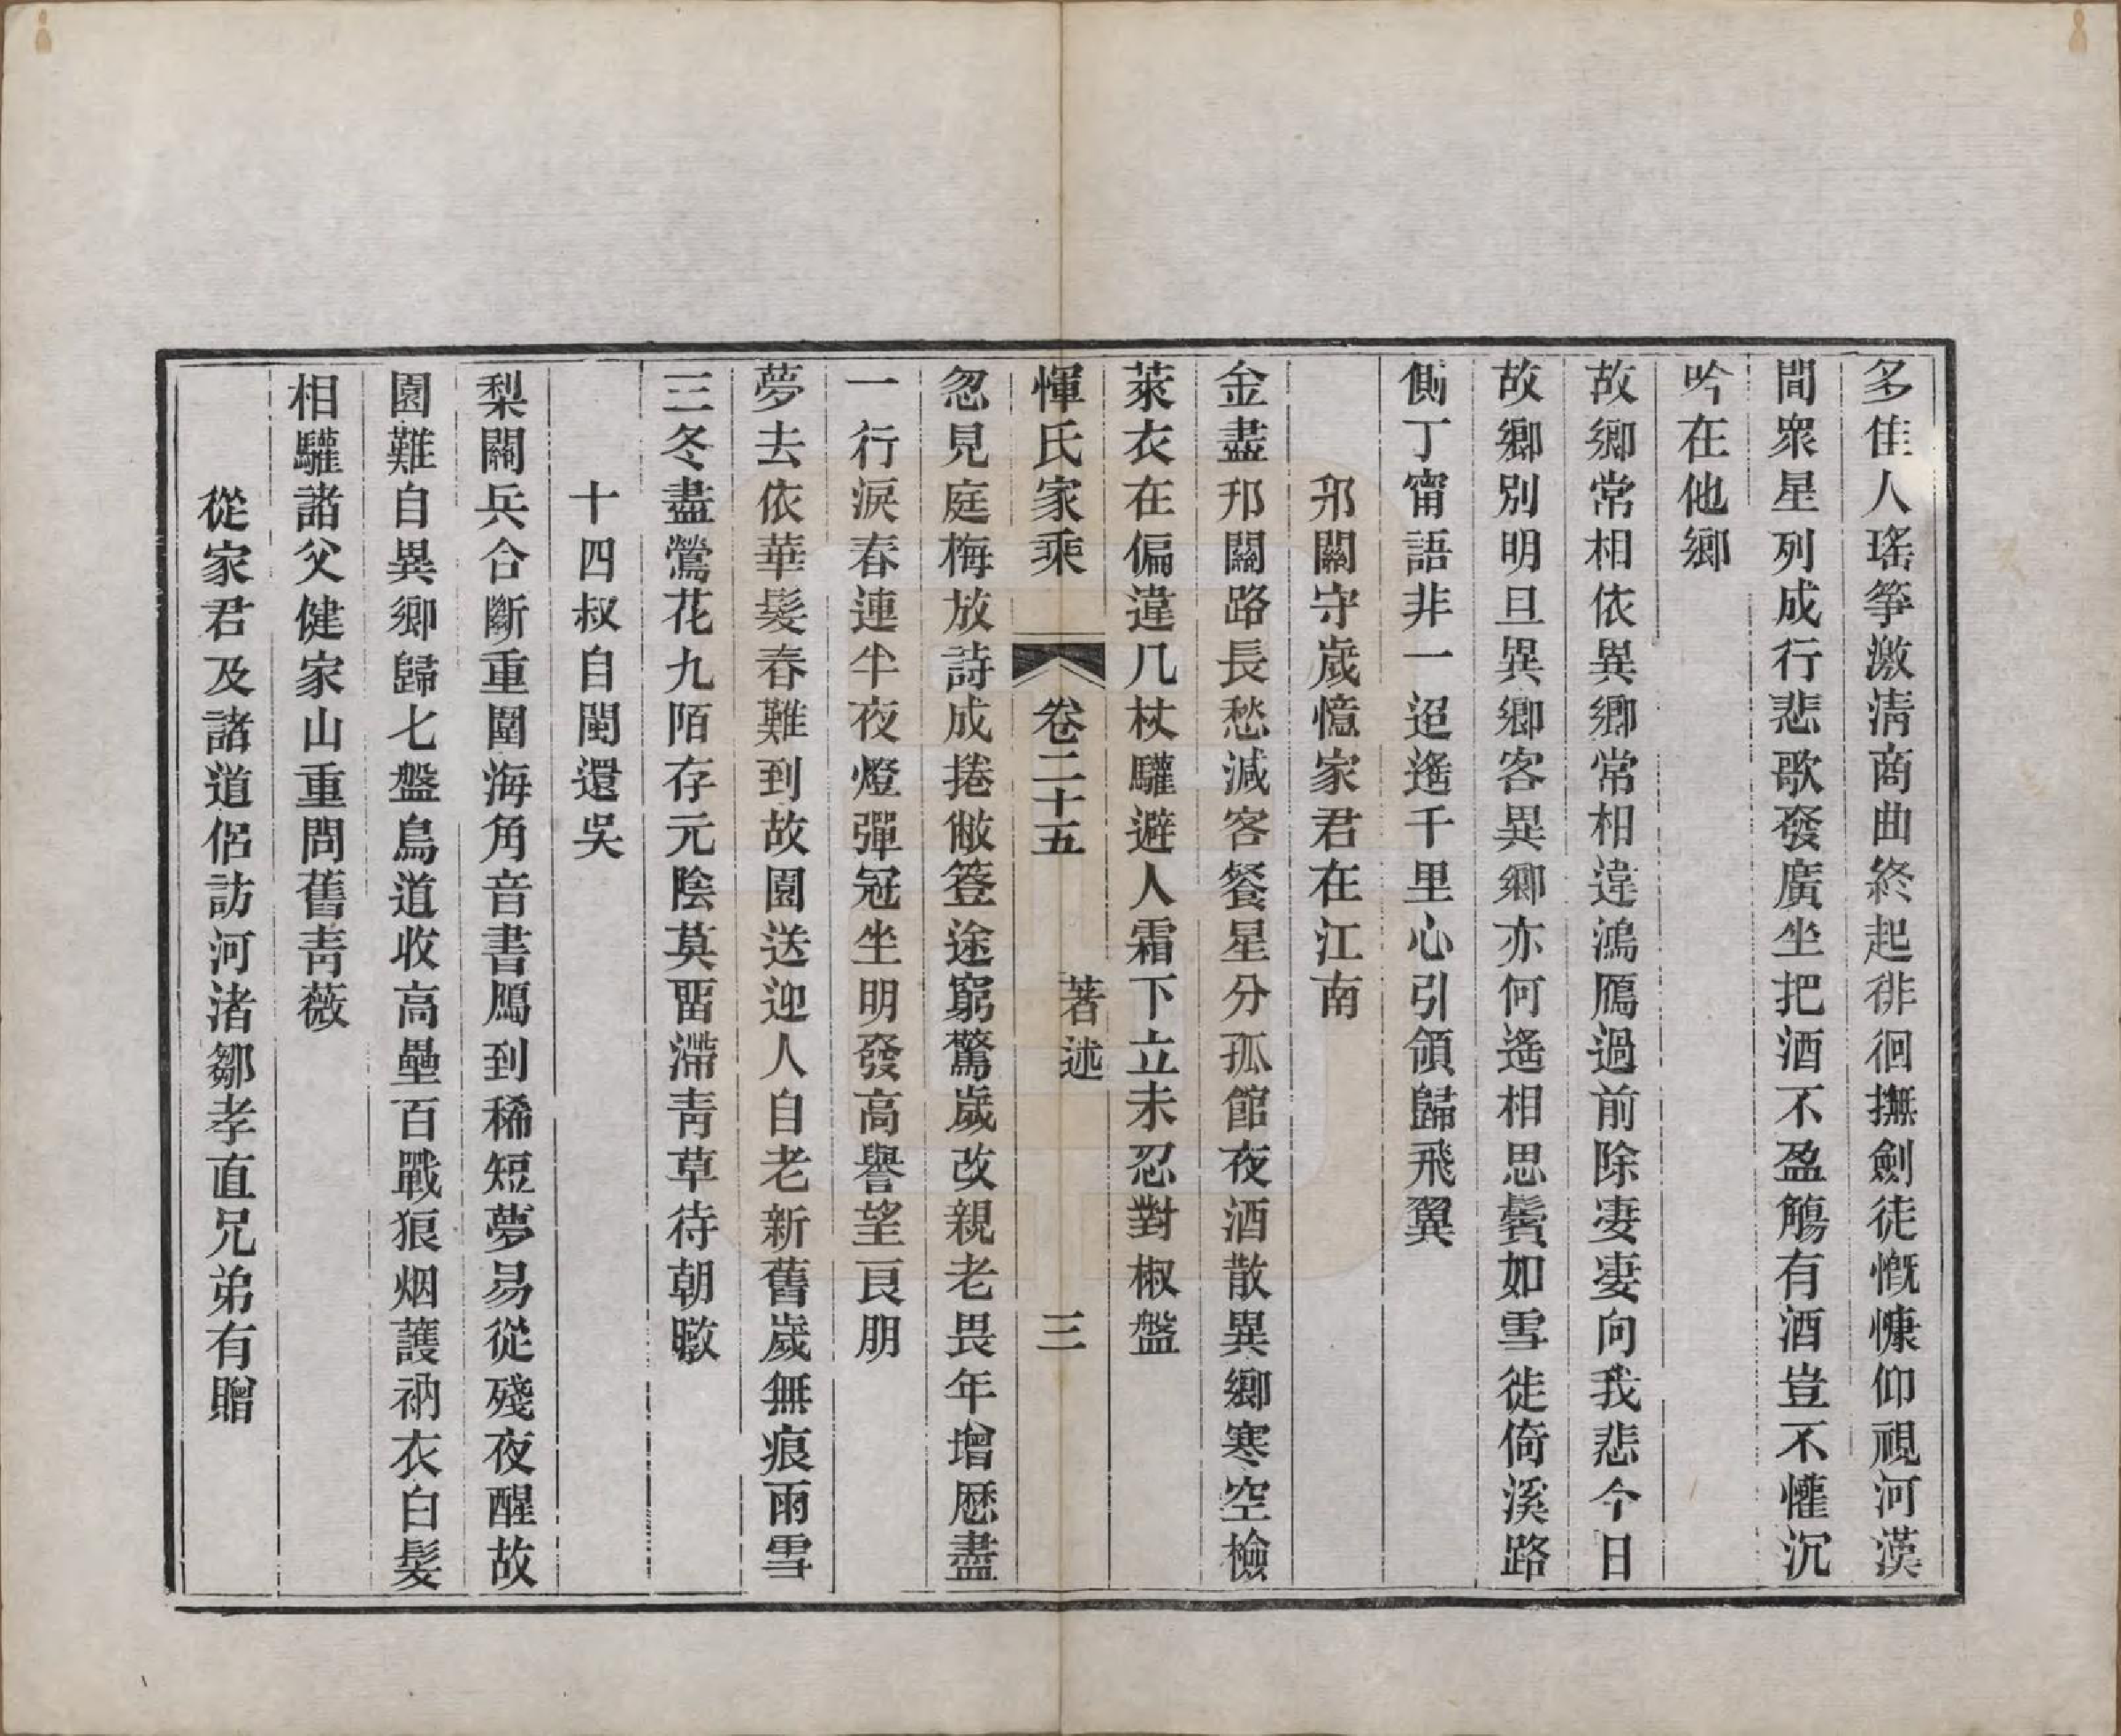 多佳人瑤箏激清商曲終起徘徊撫劍徒慨慷仰視河漢
間衆星列成行悲歌發廣坐把酒不盈觴有酒豈不懽沉
吟在他鄉
故鄉常相依異鄉常相違鴻鴈過前除凄凄向我悲今日
故鄉別明旦異鄉客異鄉亦何遙相思鬢如雪徙倚溪路
側丁甯語非一迢遙千里心引領歸飛翼
邗關守歲憶家君在江南
金盡邗關路長愁減客餐星分孤館夜酒散異鄉寒空檢
萊衣在偏違几杖驩避人霜下立未忍對椒盤
惲氏家乘 卷二十五 著述 三
忽見庭梅放詩成捲敝簦途窮驚歲改親老畏年增歴盡
一行淚春連半夜燈彈冠坐明發高譽望良朋
夢去依華髮春難到故園送迎人自老新舊歲無痕雨雪
三冬盡鶯花九陌存元陰莫畱滯靑草待朝暾
十四叔自閩還吳
梨關兵合斷重圍海角音書鴈到稀短夢易從殘夜醒故
園難自異鄉歸七盤鳥道收高壘百戰狼烟護衲衣白髮
相驩諸父健家山重問舊靑薇
從家君及諸道侶訪河渚鄒孝直兄弟有贈